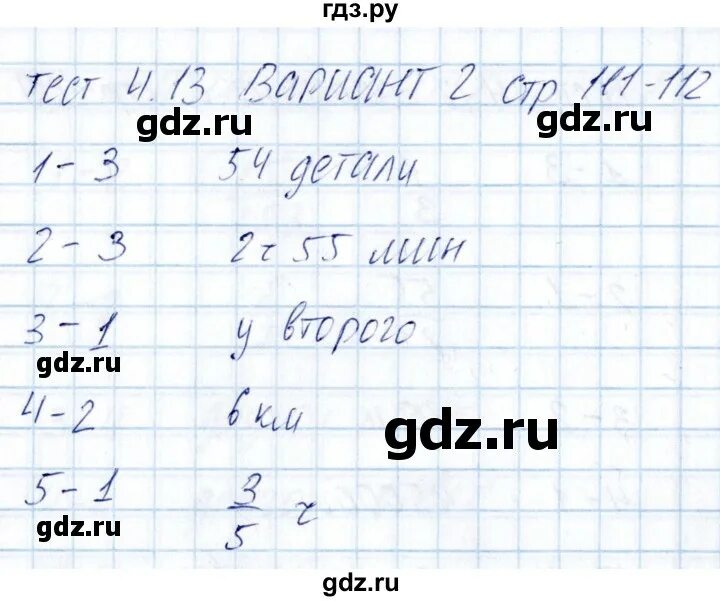 гдз.ру
тест 4.13 Вариант 2 стр 111-112
gdz.ru gdz.ru
1-3 54 детали
2-3 2ч 55 мин
3-1 у второго
gdz.ru
4-2 6 км
gdz.ru
5-1 3/5 ч
gdz.ru
gdz.ru